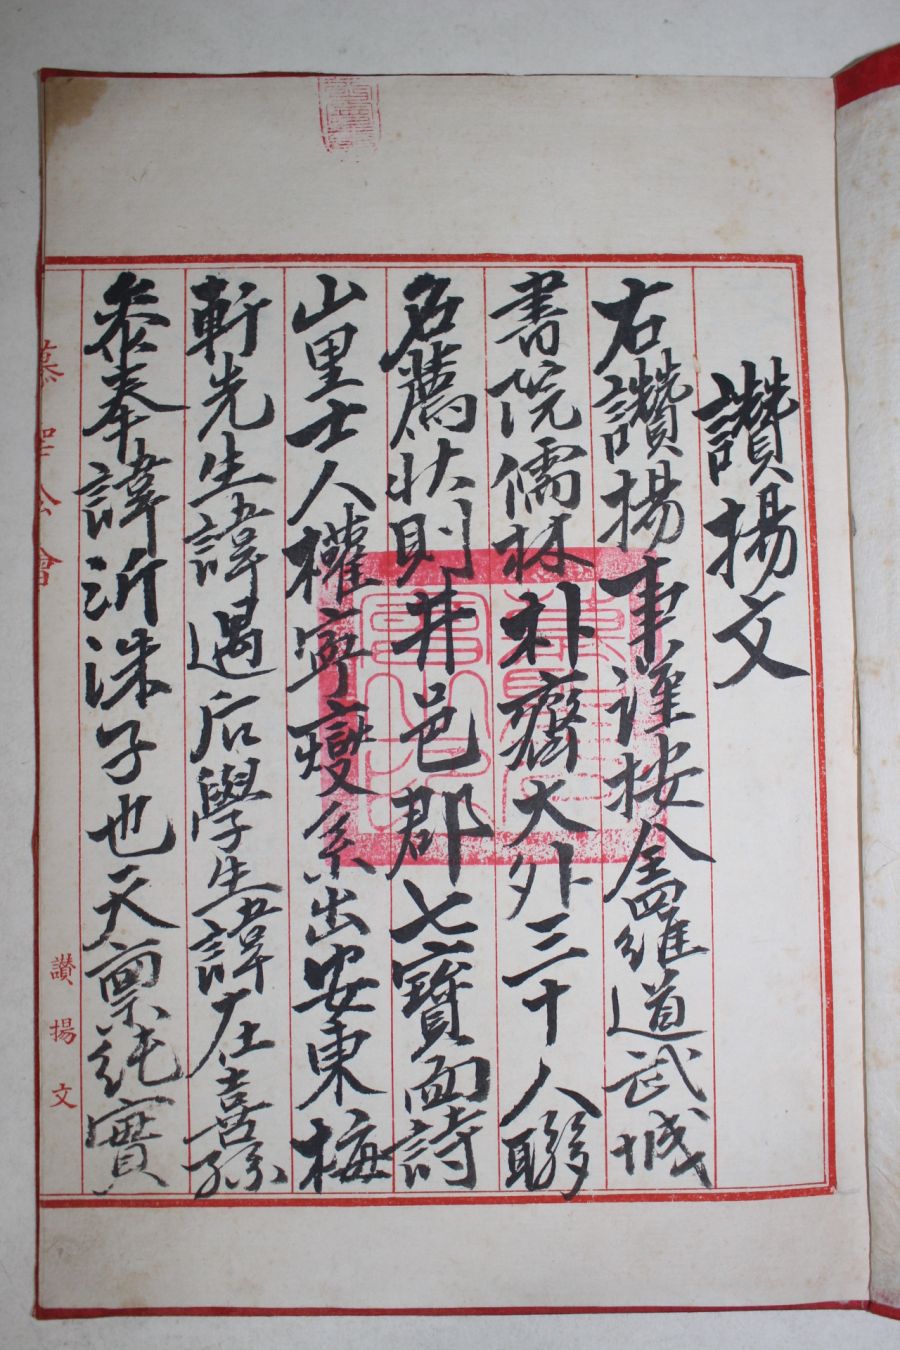 讚揚文
右讚揚事謹按全羅道武城
書院儒林朴齊大外三十人聯
名薦狀則井邑郡七寶面詩
山里士人權寧燮系出安東梅
軒先生諱遇后學生諱在喜孫
泰奉諱沂洙子也天禀純實
慕聖公會
讚揚文